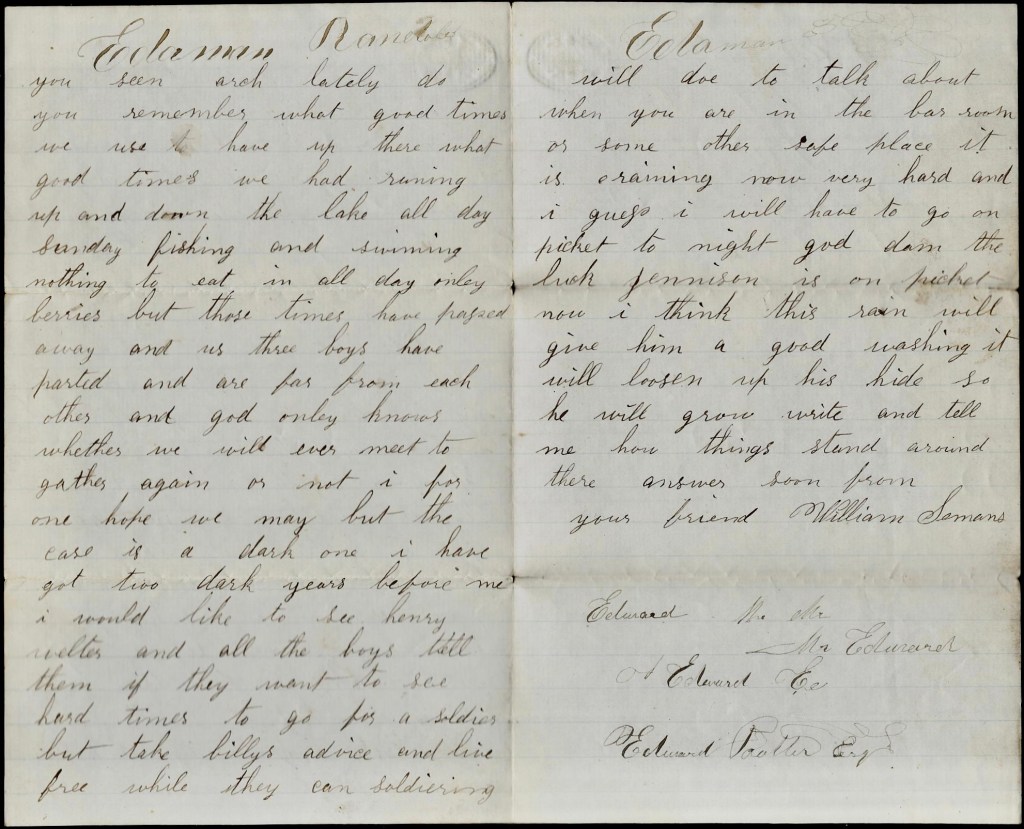 Edaman Rand
you seen arch lately do
you remember what good times
we use t have up there what
good times we had runing
up and down the lake all day
sunday fishing and swiming
nothing to eat in all day onley
berries but those times have passed
away and us three boys have
parted and are far from each
other and god onley knows
whether we will ever meet to
gather again or not i for
one hope we may but the
case is a dark one i have
got two dark years before me
i would like to see henry
welter and all the boys tell
them if they want to see
hard times to go for a soldier
but take billys advice and live
free while they can soldiering
Edaman
will doe to talk about
when you are in the bar room
or some other safe place it
is raining now very hard and
i guess i will have to go on
picket to night god dam the
luck jennison is on picket
now i think this rain will
give him a good washing it
will loosen up his hide so
he will grow write and tell
me how things stand around
there answer soon from
your friend William Semans
Edward Mr Mr
Mr Edward
Edward Ee
Edward Potter Esq